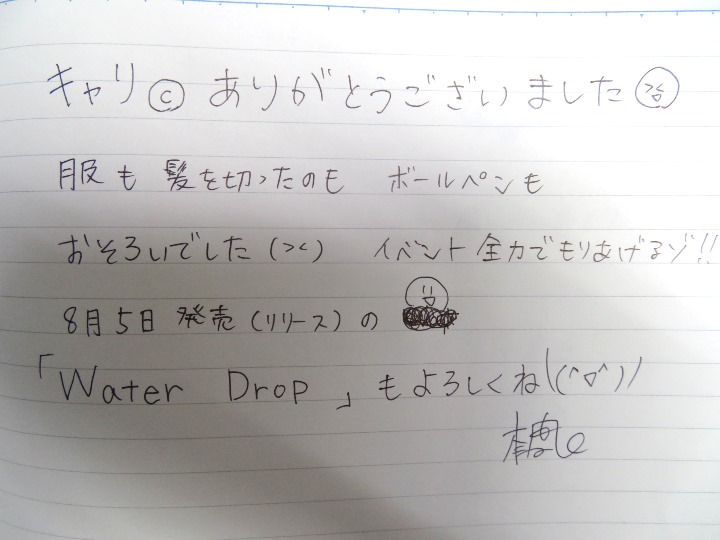 キャリ©ありがとうございました
服も髪を切ったのも ボールペンも
おそろいでした(><) イベント全力でもりあげるゾ!!
8月5日発売(リリース)の
「Water Drop」もよろしくね\(^o^)/